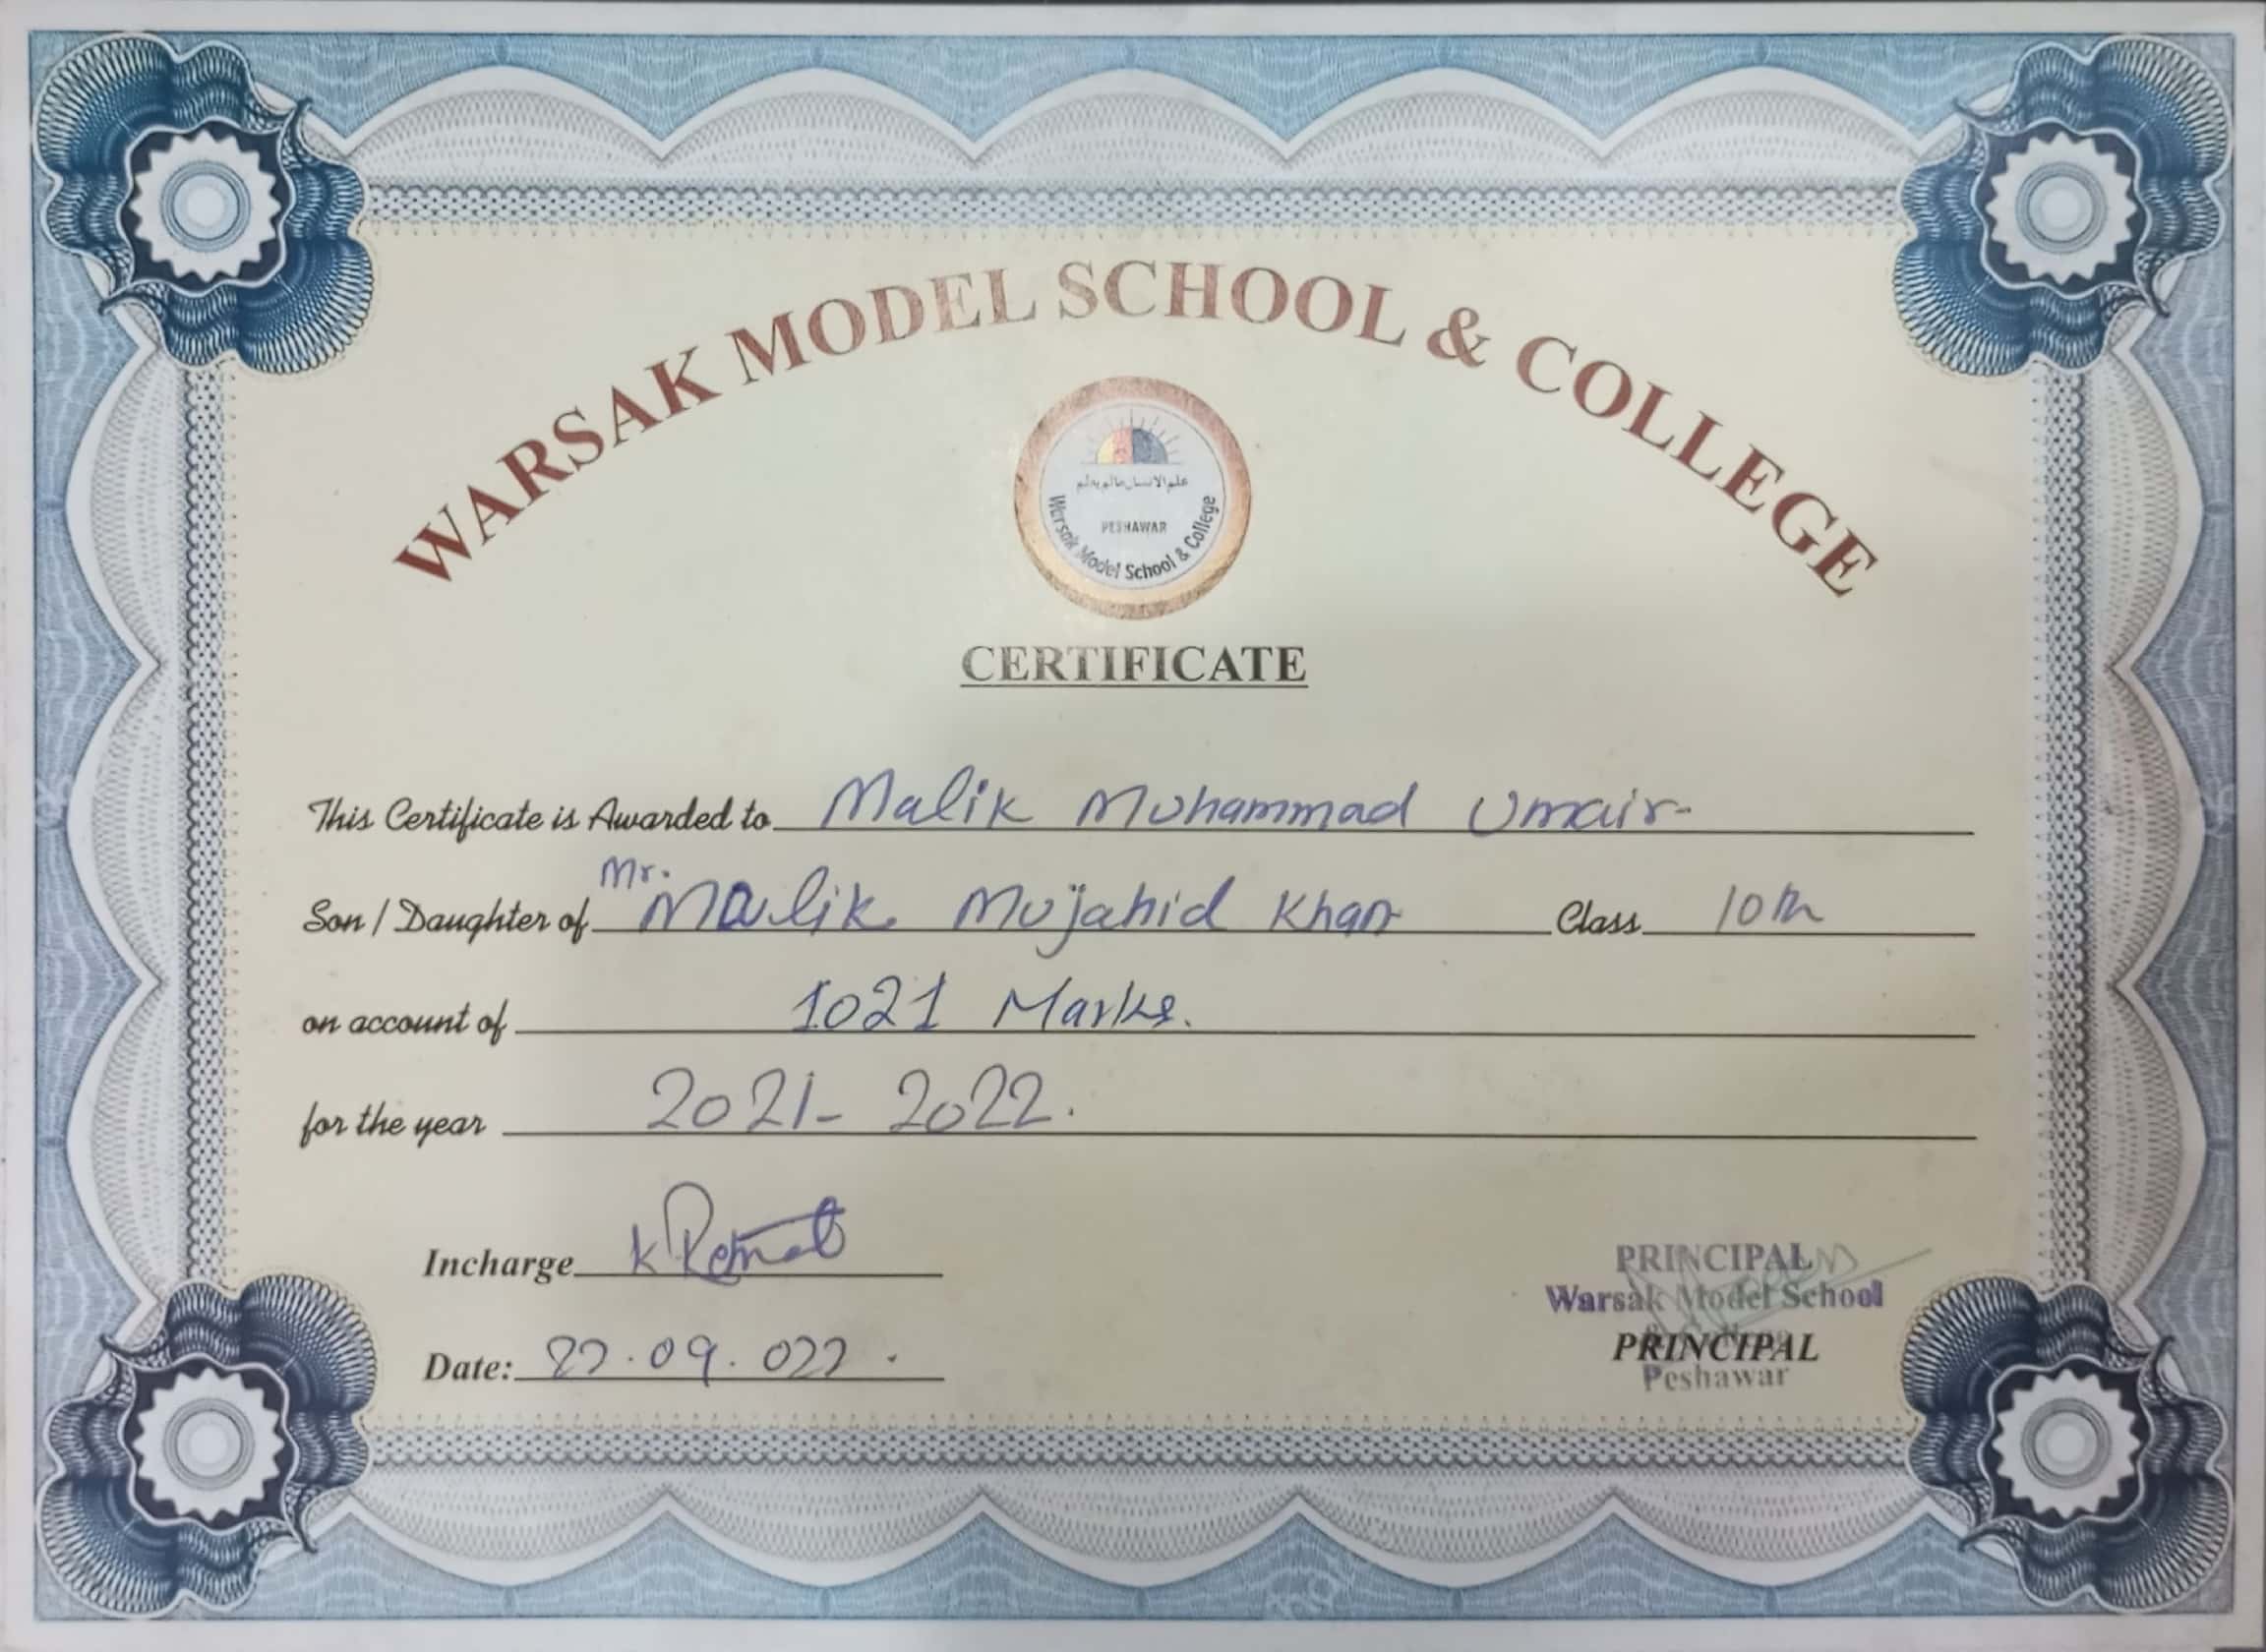 WARSAK MODEL SCHOOL & COLLEGE
علم الانسان مالم يعلم
PESHAWAR
Warsak Model School & College
CERTIFICATE
This Certificate is Awarded to Malik Muhammad Umair
Mr.
Son / Daughter of Malik Mujahid Khan Class 10th
on account of 1021 Marks.
for the year 2021- 2022.
Incharge
PRINCIPAL
Warsak Model School
PRINCIPAL
Peshawar
Date: 22.09.022.